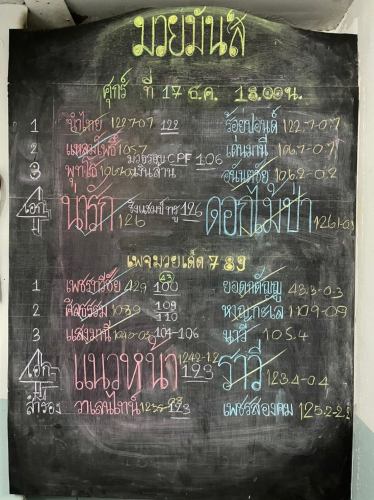 มวยมันส์
ศุกร์ ที่ 17 ธ.ค. 18.00 น.
1 ขำไทย 122.7-0.7 122 ร้อยปอนด์ 122.7-0.7
2 แหลมโพธิ์ 105.7 มวยรอบ CPF 106 เด่นมานี 106.7-0.7
3 พุทโธ เงินล้าน อนันตชัย 106.2-0.2
เอก น่ารัก 126 ชิงแชมป์ ทรู 126 ดอกไม้ป่า 126.1-0.1
เพจมวยเด็ด 789
1 เพชรทวีชัย 100 ยอดกตัญญู 43.3-0.3
2 ศิลธรรม 109 110 หงษ์ทะเล 110.9-0.9
3 แสงมานี 104-106 นารี 105.4
เอก แนวหน้า 124.2-1.2 123 ราวี่ 123.4-0.4
สำรอง วาเลนไทน์ 123 เพชรสองคม 125.2-2.2